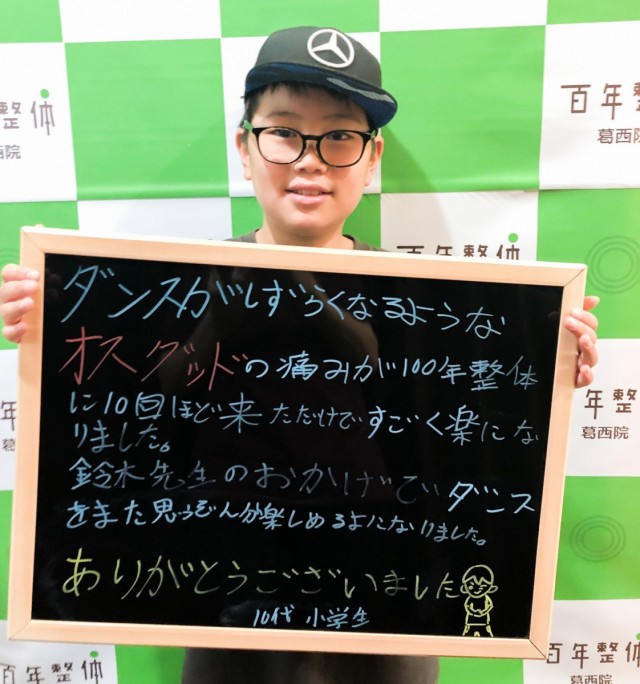 整体
西院
百年整
葛西院
百年整体
ダンスがしずらくなるような
オスグッドの痛みが100年整体
に10回ほど来ただけですごく楽にな
りました。
鈴木先生のおかげでダンス
をまた思うぞんが楽しめるよになりました。
ありがとうございました
10代 小学生
年整体
葛西院
百年整体
百年整体
葛西院